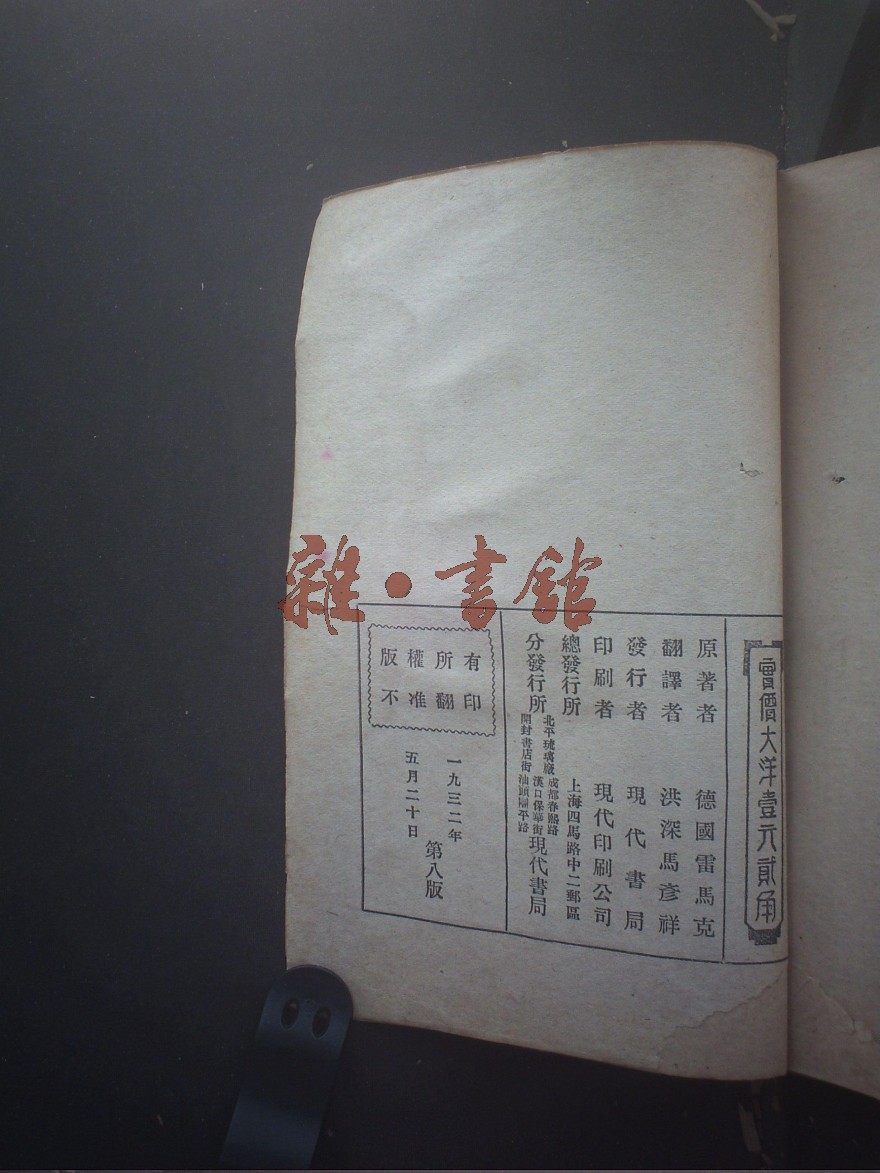 實價大洋壹元貳角
原著者 德國雷馬克
翻譯者 洪深馬彥祥
發行者 現代書局
印刷者 現代印刷公司
總發行所 上海四馬路中二郵區
分發行所
北平琉璃廠 成都春熙路
開封書店街 漢口保華街 汕頭國平路
現代書局
版權所有
不准翻印
一九三二年
五月二十日
第八版
雜·書館